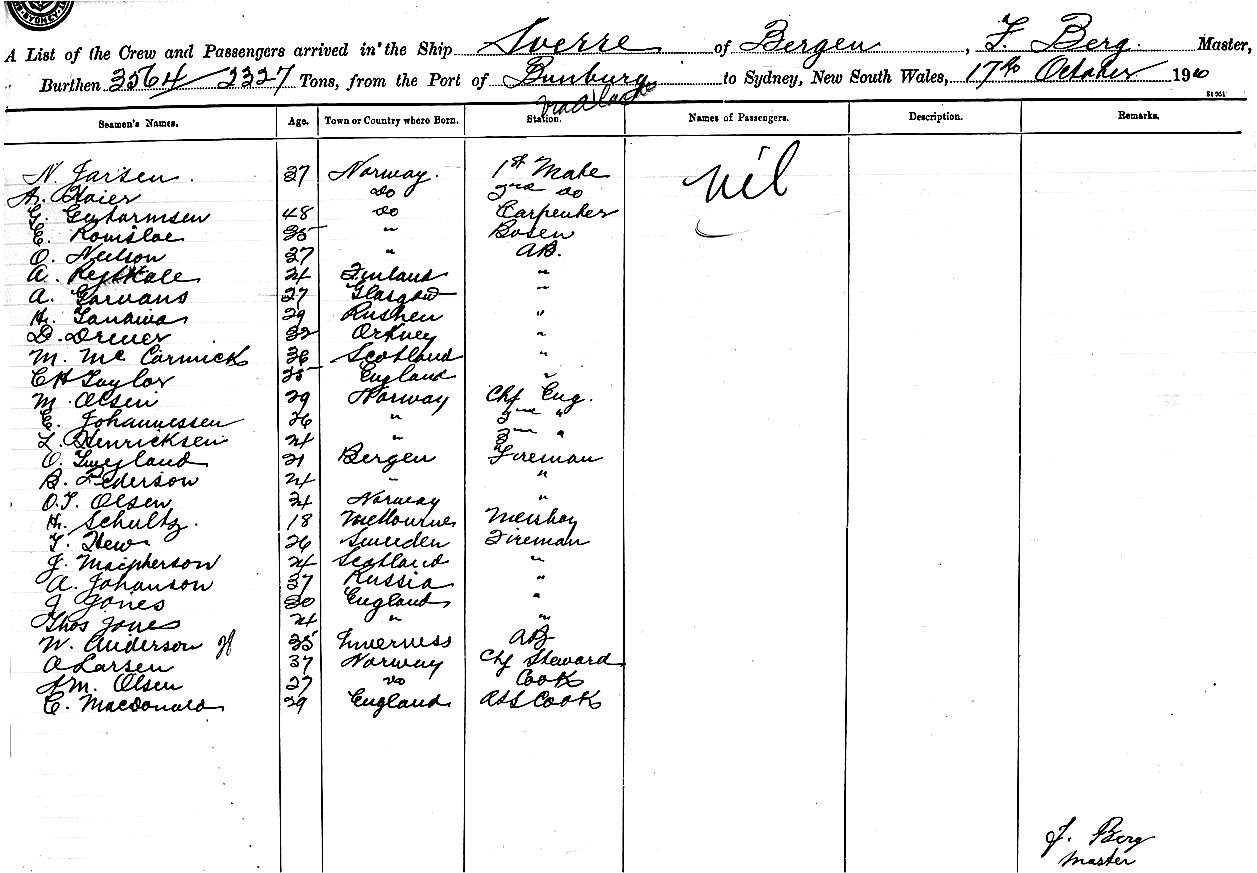 SYDNEY
A List of the Crew and Passengers arrived in the Ship Sverre of Bergen, F. Berg. Master,
Burthen 3564/2327 Tons, from the Port of Bunbury to Sydney, New South Wales, 17th October 1910
via
Seamen's Names. Age. Town or Country where Born. Station. Names of Passengers. Description. Remarks.
N. Jarsen. 27 Norway. 1st Mate nil
A. Haier do 2nd do
G. Guttormsen 48 do Carpenter
C. Romslae 35 " Bosen
O. Neilson 27 " AB.
A. 24 Finland "
A. Garvans 27 Glasgow "
H. 29 Rushen "
D. Drever 32 Orkney "
M. Mc Cormick 36 Scotland "
C H Taylor 25 England "
M. Olsen 29 Norway Chf Eng.
C. Johannessen 26 " 2nd "
L. Henricksen 24 " 3rd "
O. 21 Bergen Fireman
B. Pederson 24 " "
O.T. Olsen 24 Norway "
H. Schultz. 18 Melbourne Messboy
T. Hew 26 Sweeden Fireman
J. Macpherson 24 Scotland "
A. Johanson 37 Russia "
J Jones 30 England "
Thos Jones 24 " "
W. Anderson 35 Inverness AB
A Larsen 37 Norway Chf Steward
M. Olsen 27 do Cook
C. Macdonald 29 England Ass Cook
F. Berg
Master